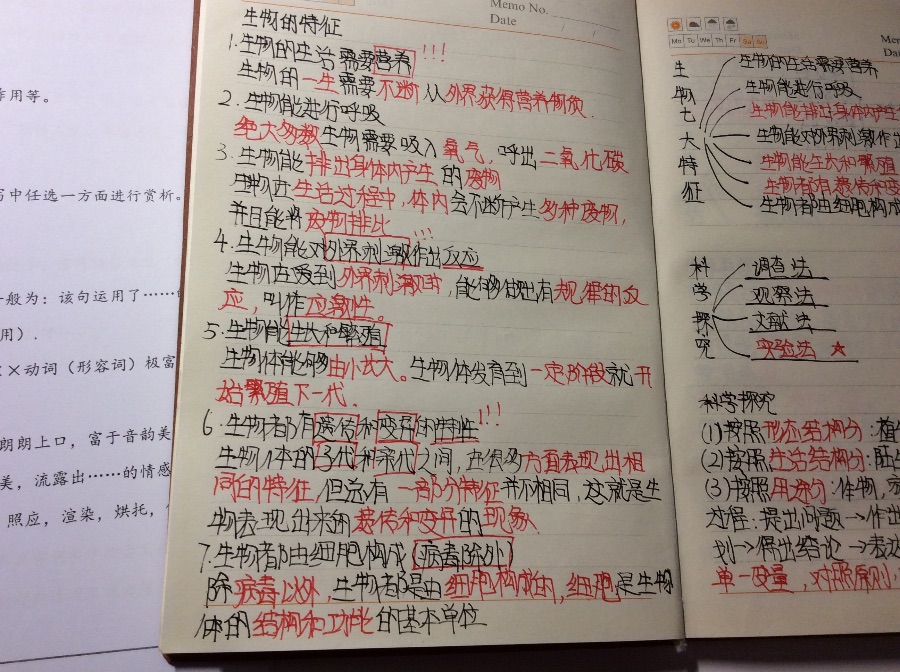 作用等。
写中任选一方面进行赏析。
一般为：该句运用了……
用）.
×动词（形容词）极富
朗朗上口，富于音韵美
美，流露出……的情感
照应，渲染，烘托，
Memo No.
Date
生物的特征
1.生物的生活需要营养!!!
生物的一生需要不断从外界获得营养物质.
2.生物能进行呼吸
绝大多数生物需要吸入氧气,呼出二氧化碳
3.生物能排出身体内产生的废物
生物在生活过程中,体内会不断产生多种废物,
并且能将废物排出
4.生物能对外界刺激作出反应!!!
生物在受到外界刺激时,能够做出有规律的反
应,叫作应激性。
5.生物能生长和繁殖
生物体能够由小长大。生物体发育到一定阶段就开
始繁殖下一代.
6.生物都有遗传和变异的特性!!!
生物个体的子代和亲代之间,在很多方面表现出相
同的特征,但总有一部分特征并不相同,这就是生
物表现出来的遗传和变异的现象
7.生物都由细胞构成(病毒除外)
除病毒以外,生物都是由细胞构成的,细胞是生物
体的结构和功能的基本单位
Mo Tu We Th Fr Sa Su
生物七大特征
生物的生活需要营养
生物能进行呼吸
生物能排出身体内产生
生物能对外界刺激作出
生物能生长和繁殖
生物都有遗传和变
生物都由细胞构成
科学探究
调查法
观察法
文献法
实验法 ★
科学探究
(1)按照形态结构分:植
(2)按照生活结构分:陆生
(3)按照用途分:作物,家
过程:提出问题→作出
划→得出结论→表达
单一变量,对照原则,